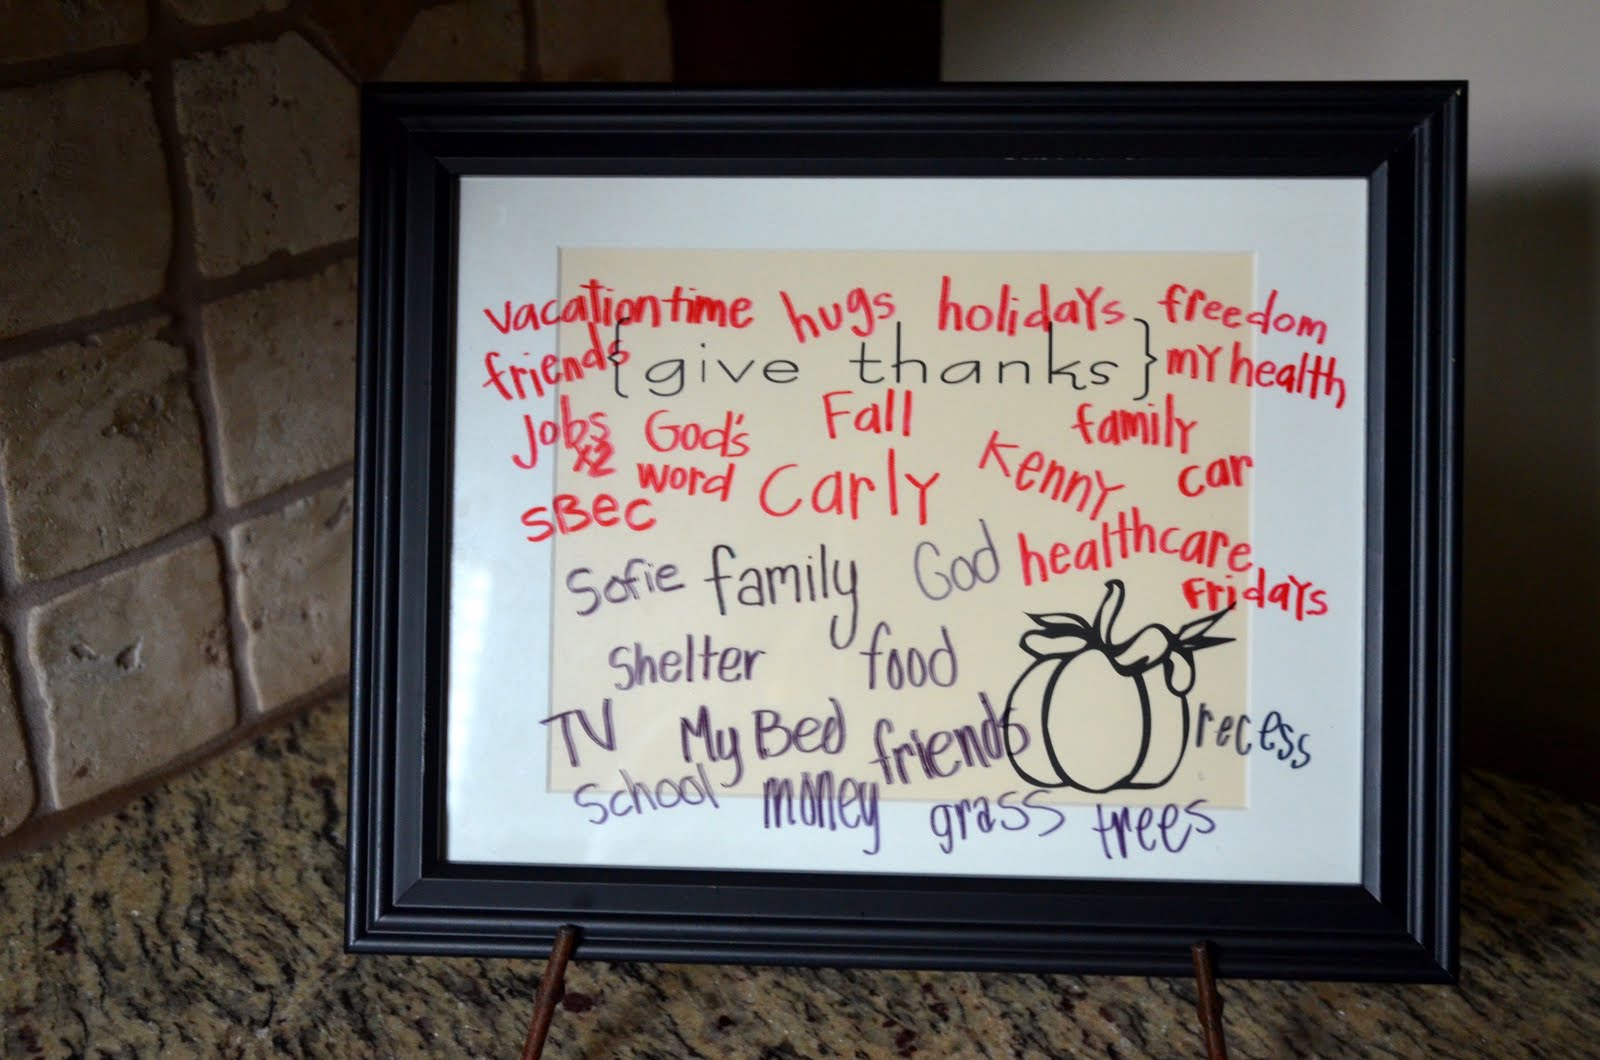 vacation time hugs holidays freedom
friends {give thanks} my health
Jobs x2 God's word Fall family
SBEC Carly Kenny car
Sofie family God healthcare
Fridays
Shelter food
TV My Bed friends recess
School money grass trees